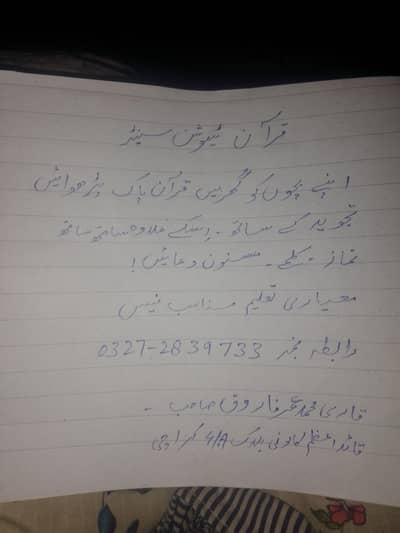 قرآن ٹیوشن سینٹر
اپنے بچوں کو گھر میں قرآن پاک پڑھوائیں
تجوید کے ساتھ ۔ اسکے علاوہ ساتھ ساتھ
نماز ۔ کلمے ۔ مسنون دعائیں!
معیاری تعلیم مناسب فیس
رابطہ نمبر 0327-2839733
قاری محمد عمر فاروق صاحب ۔
قائد اعظم کالونی بلاک 4/A کراچی